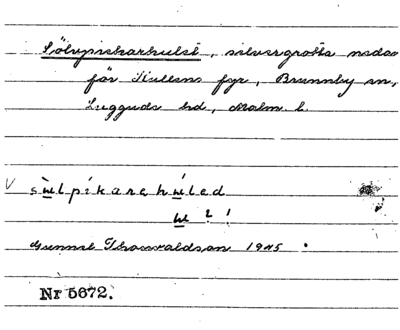 Sölvpickarhulet, silvergrotta nedan
för Kullens fyr, Brunnby sn,
Luggude hd, Malm. l.
sɯ̀lpíkarehɯ́led
ɯ ? !
Gunnel Thorvaldson 1945.
Nr 5672.